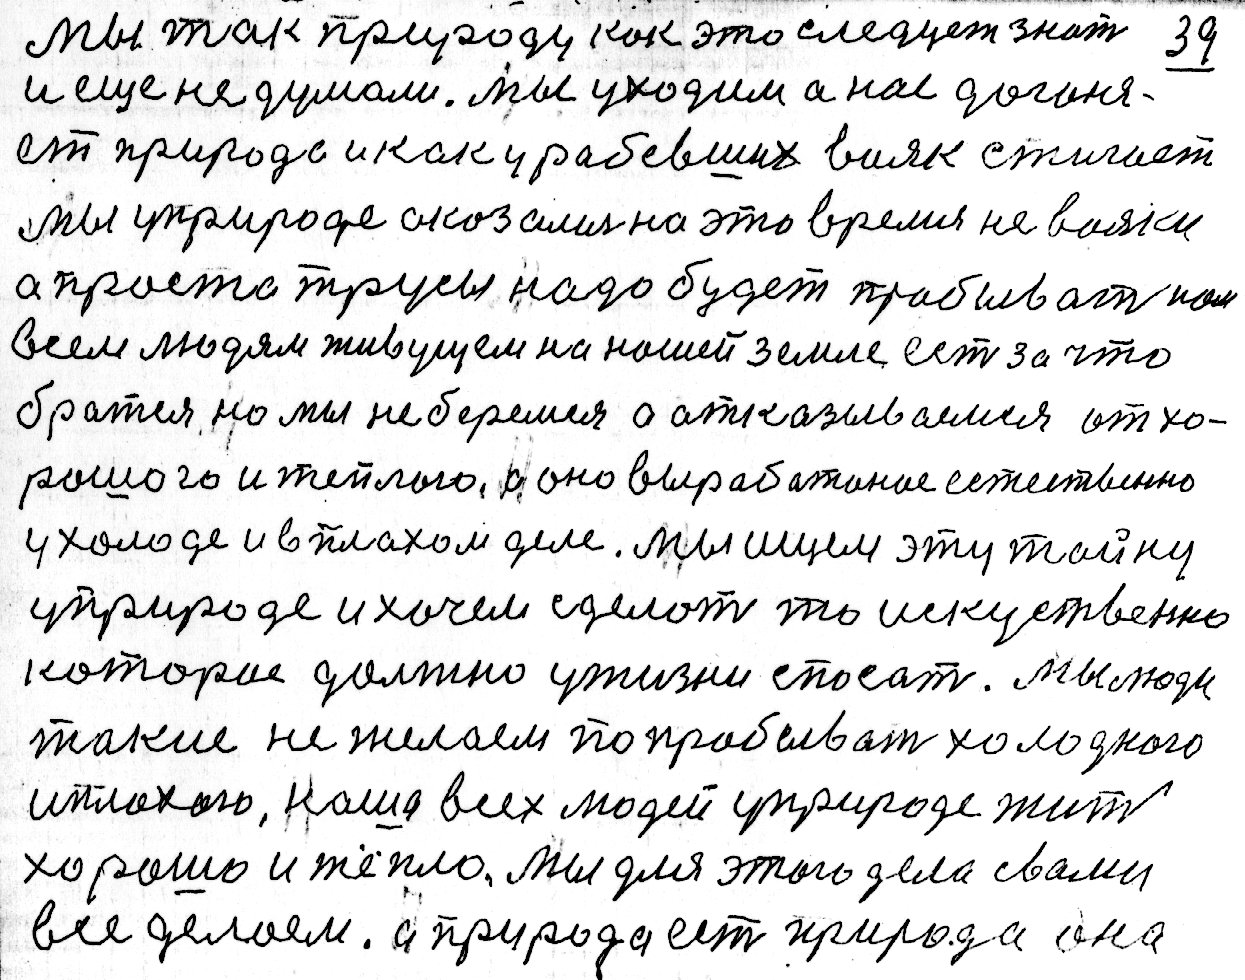 мы так природу как это следует знат 39
и еще не думали. мы уходим а нас догоня-
ет природа и как урабевших вояк стигает
мы уприроде оказалися на это время не вояки
а проста трусы надо будет прабыват нам
всем людям живущем на нашей земле ест за что
братся но мы не беремся а атказываемся от хо-
рошого и теплого. а оно вырабатоное естественно
ухолоде и в плахом деле. мы ищем эту тайну
уприроде и хочем сделат то искуственно
которае должно ужизни спосат. мы люди
такие не желаем попробыват холодного
и плохого, наша всех людей уприроде жит
хорошо и тёпло. мы для этого дела свами
все делоем. а природа ест природа она